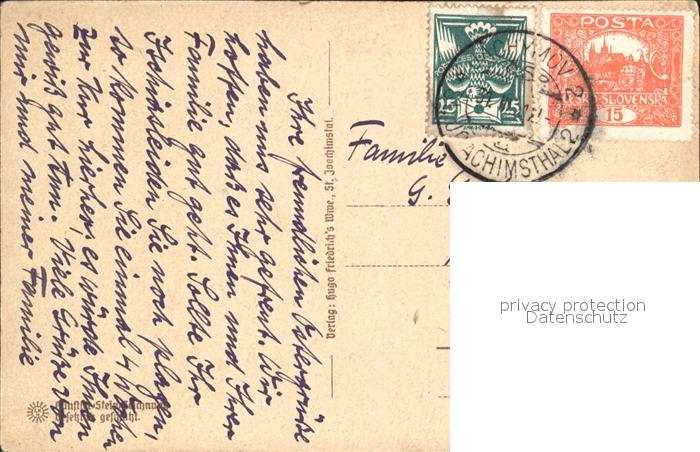 Ihre freundlichen Ostergrüße
haben uns sehr gefreut. Wir
hoffen, daß es Ihnen und Ihrer
Familie gut geht. Sollte Ihr
Ischiasleiden Sie noch plagen,
so kommen Sie einmal 4 Wochen
zur Kur hierher, es würde Ihnen
gewiß gut tun. Viele Grüße von
mir und meiner Familie
Verlag: Hugo Friedrich's Wwe., St. Joachimstal.
Künstler-Steinzeichnung
Gesetzlich geschützt.
25 25
POSTA
ČESKO-SLOVENSKÁ
15
JÁCHYMOV 2
ST. JOACHIMSTHAL 2
Familie
G.
privacy protection
Datenschutz